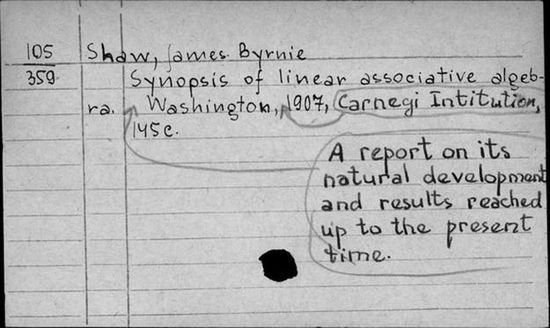 105 Shaw, James Byrnie
359 Synopsis of linear associative algeb-
ra. Washington, 1907, Carnegi Intitution,
145c.
A report on its
natural development
and results reached
up to the present
time.